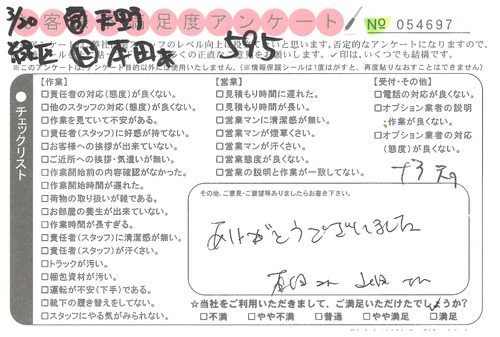 3/20
お客様満足度アンケート
No 054697
595
チェックリスト
【作業】
□責任者の対応(態度)が良くない。
□他のスタッフの対応(態度)が良くない。
□作業を見ていて不安がある。
□責任者(スタッフ)に好感が持てない。
□お客様への挨拶が出来ていない。
□ご近所への挨拶・気遣いが無い。
□作業開始前の内容確認がなかった。
□作業開始時間が遅れた。
□荷物の取り扱いが雑である。
□お部屋の養生が出来ていない。
□作業時間が長すぎる。
□責任者(スタッフ)に清潔感が無い。
□責任者(スタッフ)が汗くさい。
□トラックが汚い。
□梱包資材が汚い。
□運転が不安(下手)である。
□靴下の履き替えてしてない。
□スタッフにやる気がみられない。
【営業】
□見積もり時間に遅れた。
□見積もり時間が長い。
□営業マンに清潔感が無い。
□営業マンが煙草くさい。
□営業マンが汗くさい。
□営業態度が良くない。
□営業の説明と作業が一致してない。
【受付・その他】
□電話の対応が良くない。
□オプション業者の説明
作業が良くない。
□オプション業者の対応
(態度)が良くない。
その他、ご意見・ご要望等ありましたらお書き下さい。
ありがとうございました
☆当社をご利用いただきまして、ご満足いただけたでしょうか?
□不満 □やや不満 □普通 □やや満足 □満足